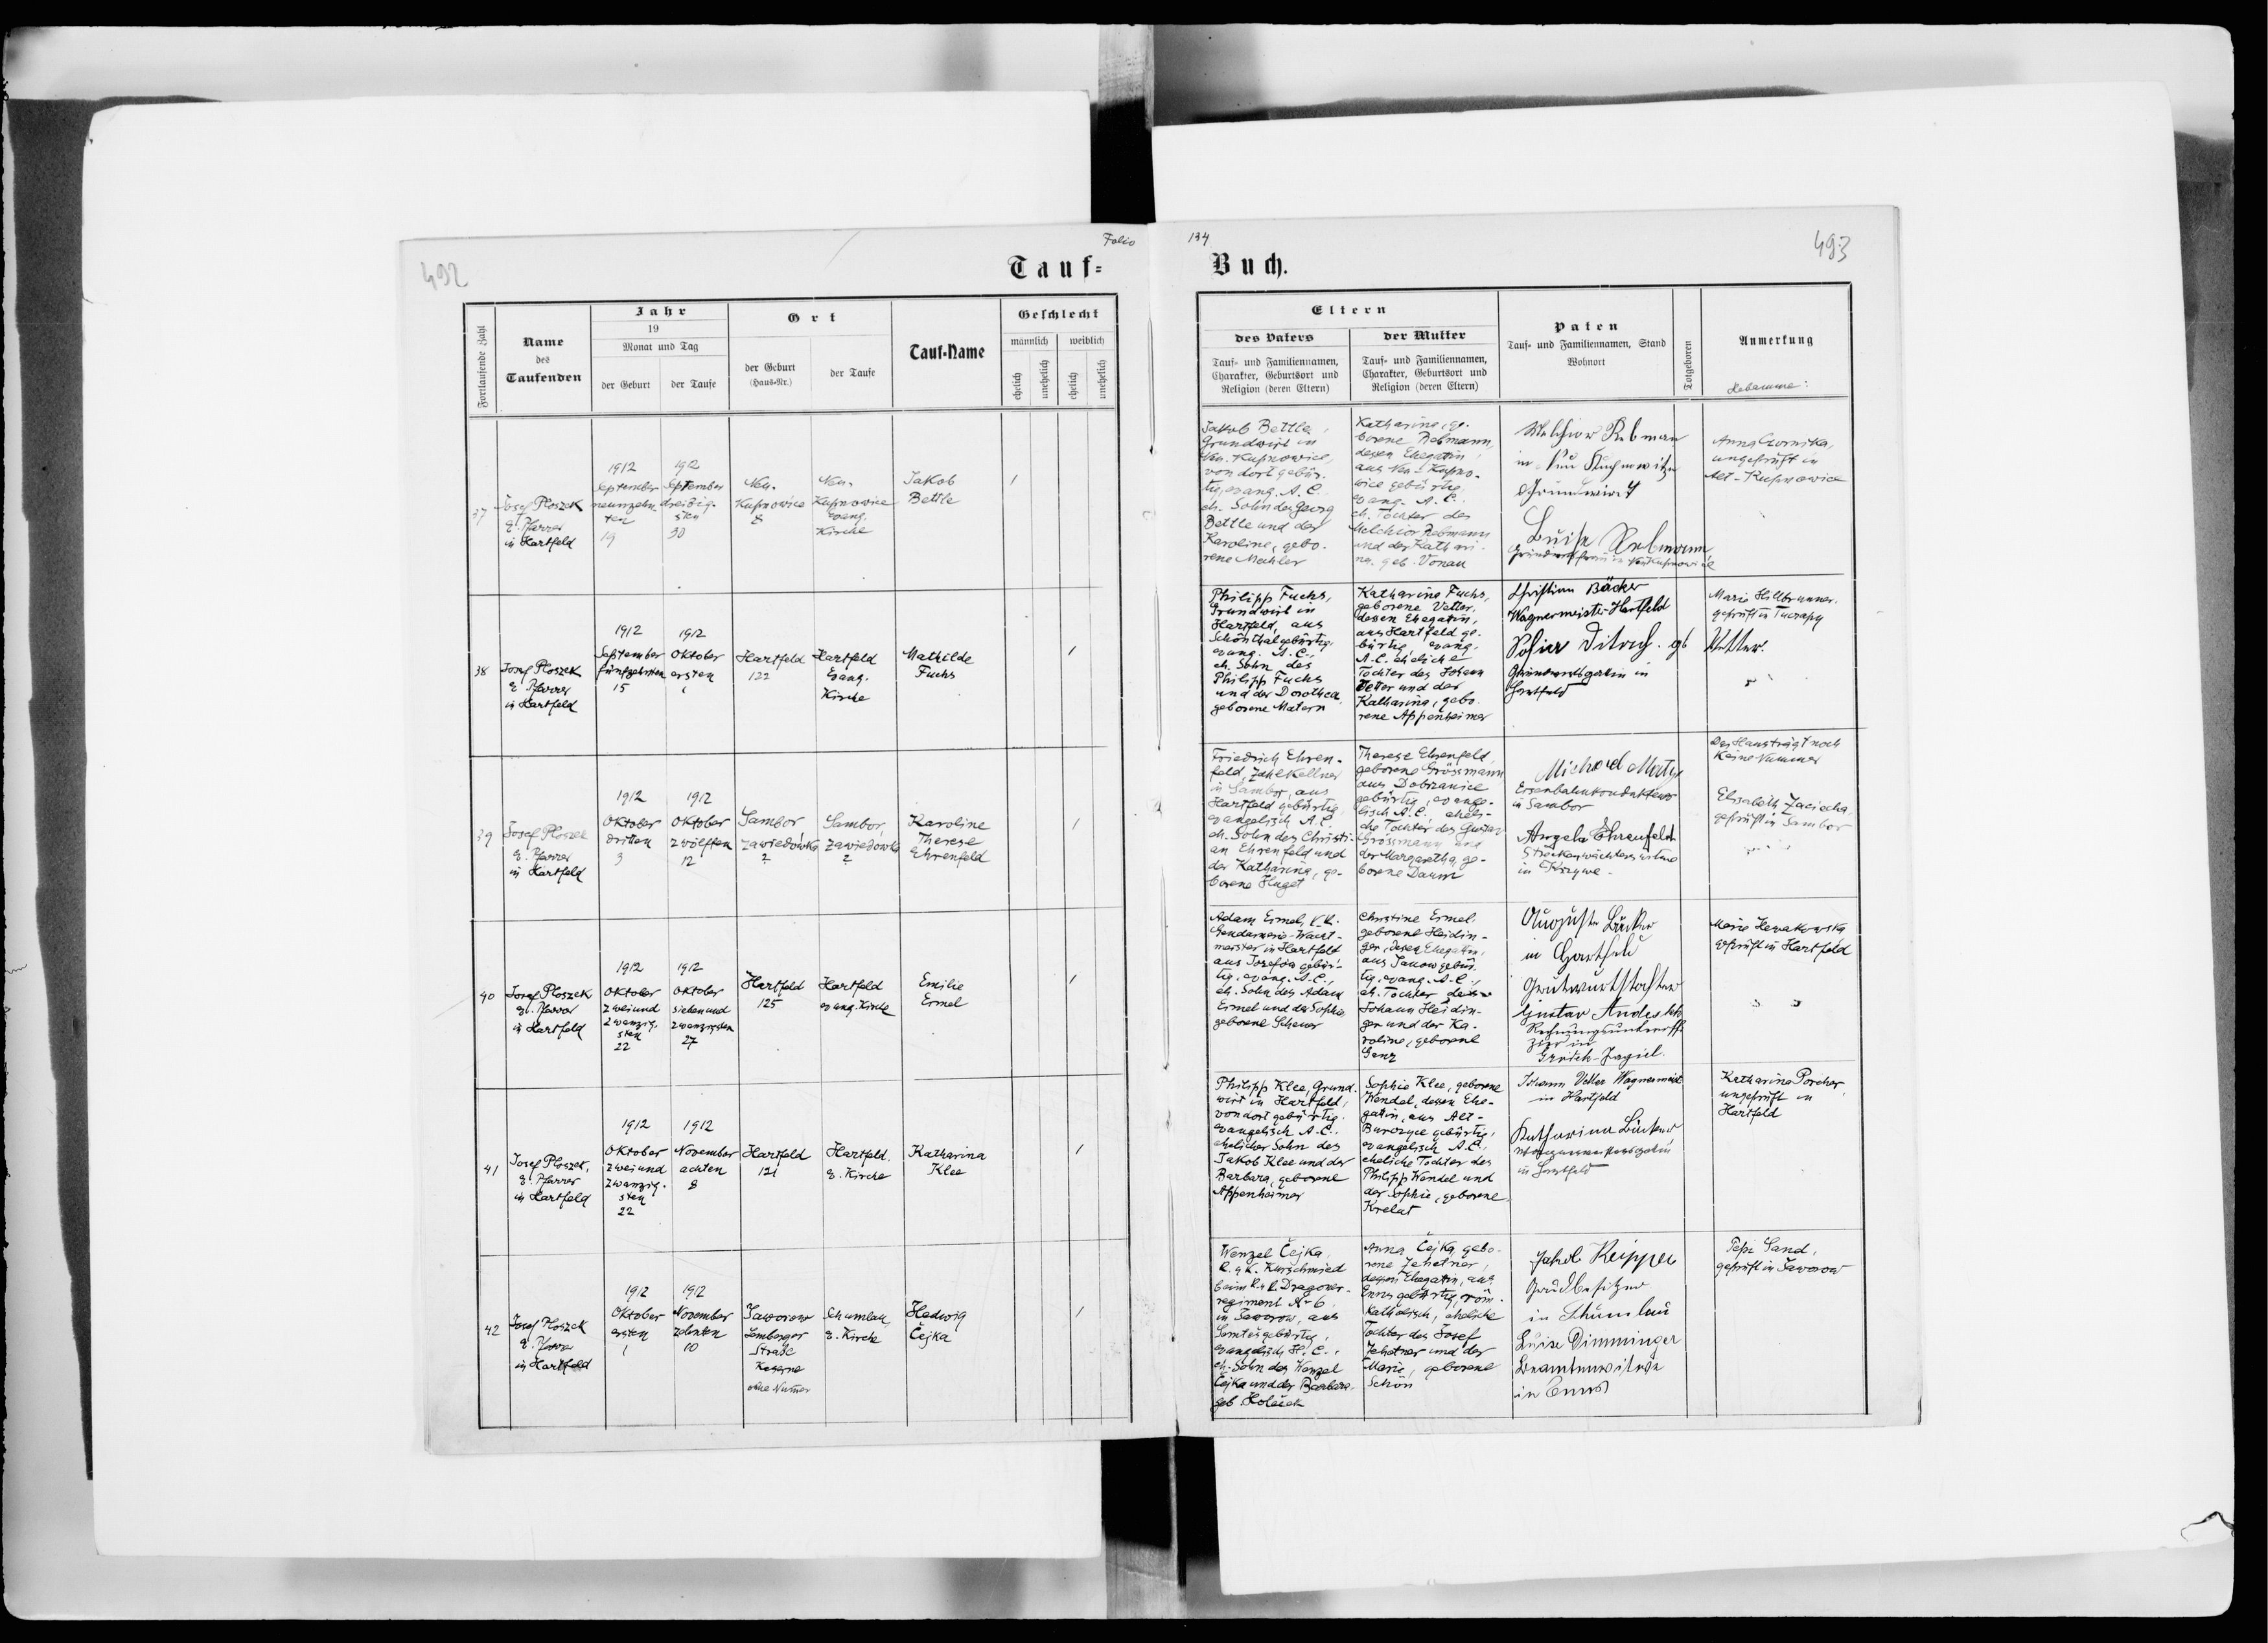 492
Folio
134
493
Tauf=
Buch.
Fortlaufende Zahl
Name
des
Taufenden
Jahr
19
Monat und Tag
der Geburt
der Taufe
Ort
der Geburt
(Haus=Nr.)
der Taufe
Tauf=Name
Geschlecht
männlich
weiblich
ehelich
unehelich
ehelich
unehelich
Eltern
des Vaters
Tauf= und Familiennamen,
Charakter, Geburtsort und
Religion (deren Eltern)
der Mutter
Tauf= und Familiennamen,
Charakter, Geburtsort und
Religion (deren Eltern)
Paten
Tauf= und Familiennamen, Stand
Wohnort
Totgeboren
Anmerkung
Hebamme:
37
Josef Ploszek
E. Pfarrer
in Hartfeld
1912
September
neunzehn
ten
19
1912
September
dreißig-
sten
30
Neu-
Kupnowice
8
Neu-
Kupnowice
evang.
Kirche
Jakob
Bettle
/
Jakob Bettle,
Grundwirt in
Neu-Kupnowice,
von dort gebür-
tig, evang. A. C.
eh. Sohn des Georg
Bettle und der
Karoline, gebo-
rene Machler
Katharine, ge-
borene Rebmann,
dessen Ehegattin,
aus Neu-Kupno-
wice gebürtig,
evang. A. C.
eh. Tochter des
Melchior Rebmann
und der Kathari-
na, geb. Vonau
Melchior Rebman
in Neu Kupnowitze
Grundwirt
Luise Rebmann
Grundwirtsfrau in Neu Kupnowice
Anna Czornika,
ungeprüft in
Alt-Kupnowice
38
Josef Ploszek
E. Pfarrer
in Hartfeld
1912
September
fünfzehnten
15
1912
Oktober
ersten
1
Hartfeld
122
Hartfeld
Evang.
Kirche
Mathilde
Fuchs
/
Philipp Fuchs,
Grundwirt in
Hartfeld, aus
Schönthal gebürtig,
evang. A. C.,
eh. Sohn des
Philipp Fuchs
und der Dorothea,
geborene Matern
Katharine Fuchs,
geborene Vetter,
dessen Ehegattin,
aus Hartfeld ge-
bürtig, evang.
A. C. eheliche
Tochter des Johann
Vetter und der
Katharina, gebo-
rene Appenheimer
Christian Bäcker
Wagnermeister Hartfeld
Sofia Ditrich. gb Vetter.
Grundwirtsgattin in
Hartfeld
Marie Hillbrunner,
geprüft in Tuczapy
39
Josef Ploszek
E. Pfarrer
in Hartfeld
1912
Oktober
dritten
3
1912
Oktober
zwölften
12
Sambor
Zawiedówka
?
Sambor,
Zawiedówka
?
Karoline
Therese
Ehrenfeld
/
Friedrich Ehren-
feld, Zahlkellner
in Sambor, aus
Hartfeld gebürtig
evangelisch A. C.
eh. Sohn des Christi-
an Ehrenfeld und
der Katharina, ge-
borene Huget
Therese Ehrenfeld,
geborene Grössmann
aus Dobrzanice
gebürtig, evange-
lisch A. C., eheli-
che Tochter des Gustav
Grössmann und
der Margaretha, ge-
borene Daum
Michael
Eisenbahnkondukteur
in Sambor
Angela Ehrenfeld
Streckenwächters
in
Das Haus trägt noch
keine Nummer
Elisabeth Zaciecha,
geprüft in Sambor
40
Josef Ploszek
E. Pfarrer
in Hartfeld
1912
Oktober
zweiund
zwanzig-
sten
22
1912
Oktober
siebenund
zwanzigsten
27
Hartfeld
125
Hartfeld
evang. Kirche
Emilie
Ermel
/
Adam Ermel, K. K.
Gendarmerie-Wacht-
meister in Hartfeld
aus Josefów gebür-
tig, evang. A. C.,
eh. Sohn des Adam
Ermel und der Sophie
geborene Scheuer
Christine Ermel,
geborene Heidin-
ger, dessen Ehegattin,
aus Janow gebür-
tig, evang. A. C.,
eh. Tochter des
Johann Heidin-
ger und der Ka-
roline, geborene
Ganz
Auguste Bäcker
in Hartfeld
Grundwirtstochter
Gustav
Rechnungsunteroffi-
zier in
Grodek-Jagiel.
Marie Kewakowska
geprüft in Hartfeld
41
Josef Ploszek,
E. Pfarrer
in Hartfeld
1912
Oktober
zweiund
zwanzig-
sten
22
1912
November
achten
8
Hartfeld
121
Hartfeld.
E. Kirche
Katharina
Klee
/
Philipp Klee, Grund-
wirt in Hartfeld,
von dort gebürtig,
evangelisch A. C.
ehelicher Sohn des
Jakob Klee und der
Barbara, geborene
Appenheimer
Sophie Klee, geborene
Wendel, dessen Ehe-
gattin, aus Alt-
Burczyce gebürtig,
evangelisch A. C.
eheliche Tochter des
Philipp Wendel und
der Sophie, geborene
Krelat
Johann Vetter Wagnermeist
in Hartfeld
Katharina Bäcker
Wagnermeistersgattin
in Hartfeld
Katharina Porcher,
ungeprüft in
Hartfeld
42
Josef Ploszek
E. Pfarrer
in Hartfeld
1912
Oktober
ersten
1
1912
November
zehnten
10
Jaworow
Lemberger
Straße
Kaserne
ohne Numer
Schumlau
E. Kirche
Hedwig
Čejka
/
Wenzel Čejka,
K. u. K. Kurschmied
beim K. u. K. Dragoner-
regiment Nr 6
in Jaworow, aus
gebürtig,
evangelisch H. C.,
eh. Sohn des Wenzel
Čejka und der Barbara,
geb. Holeček
Anna Čejka, gebo-
rene Zehetner,
dessen Ehegattin, aus
Enns gebürtig, röm.
katholisch, eheliche
Tochter des Josef
Zehetner und der
Marie, geborene
Schön
Jakob Keipper
Grundbesitzer
in Schumlau
Luise Dimminger
Beamtenwitwe
in Enns
Pepi Sand,
geprüft in Jaworow